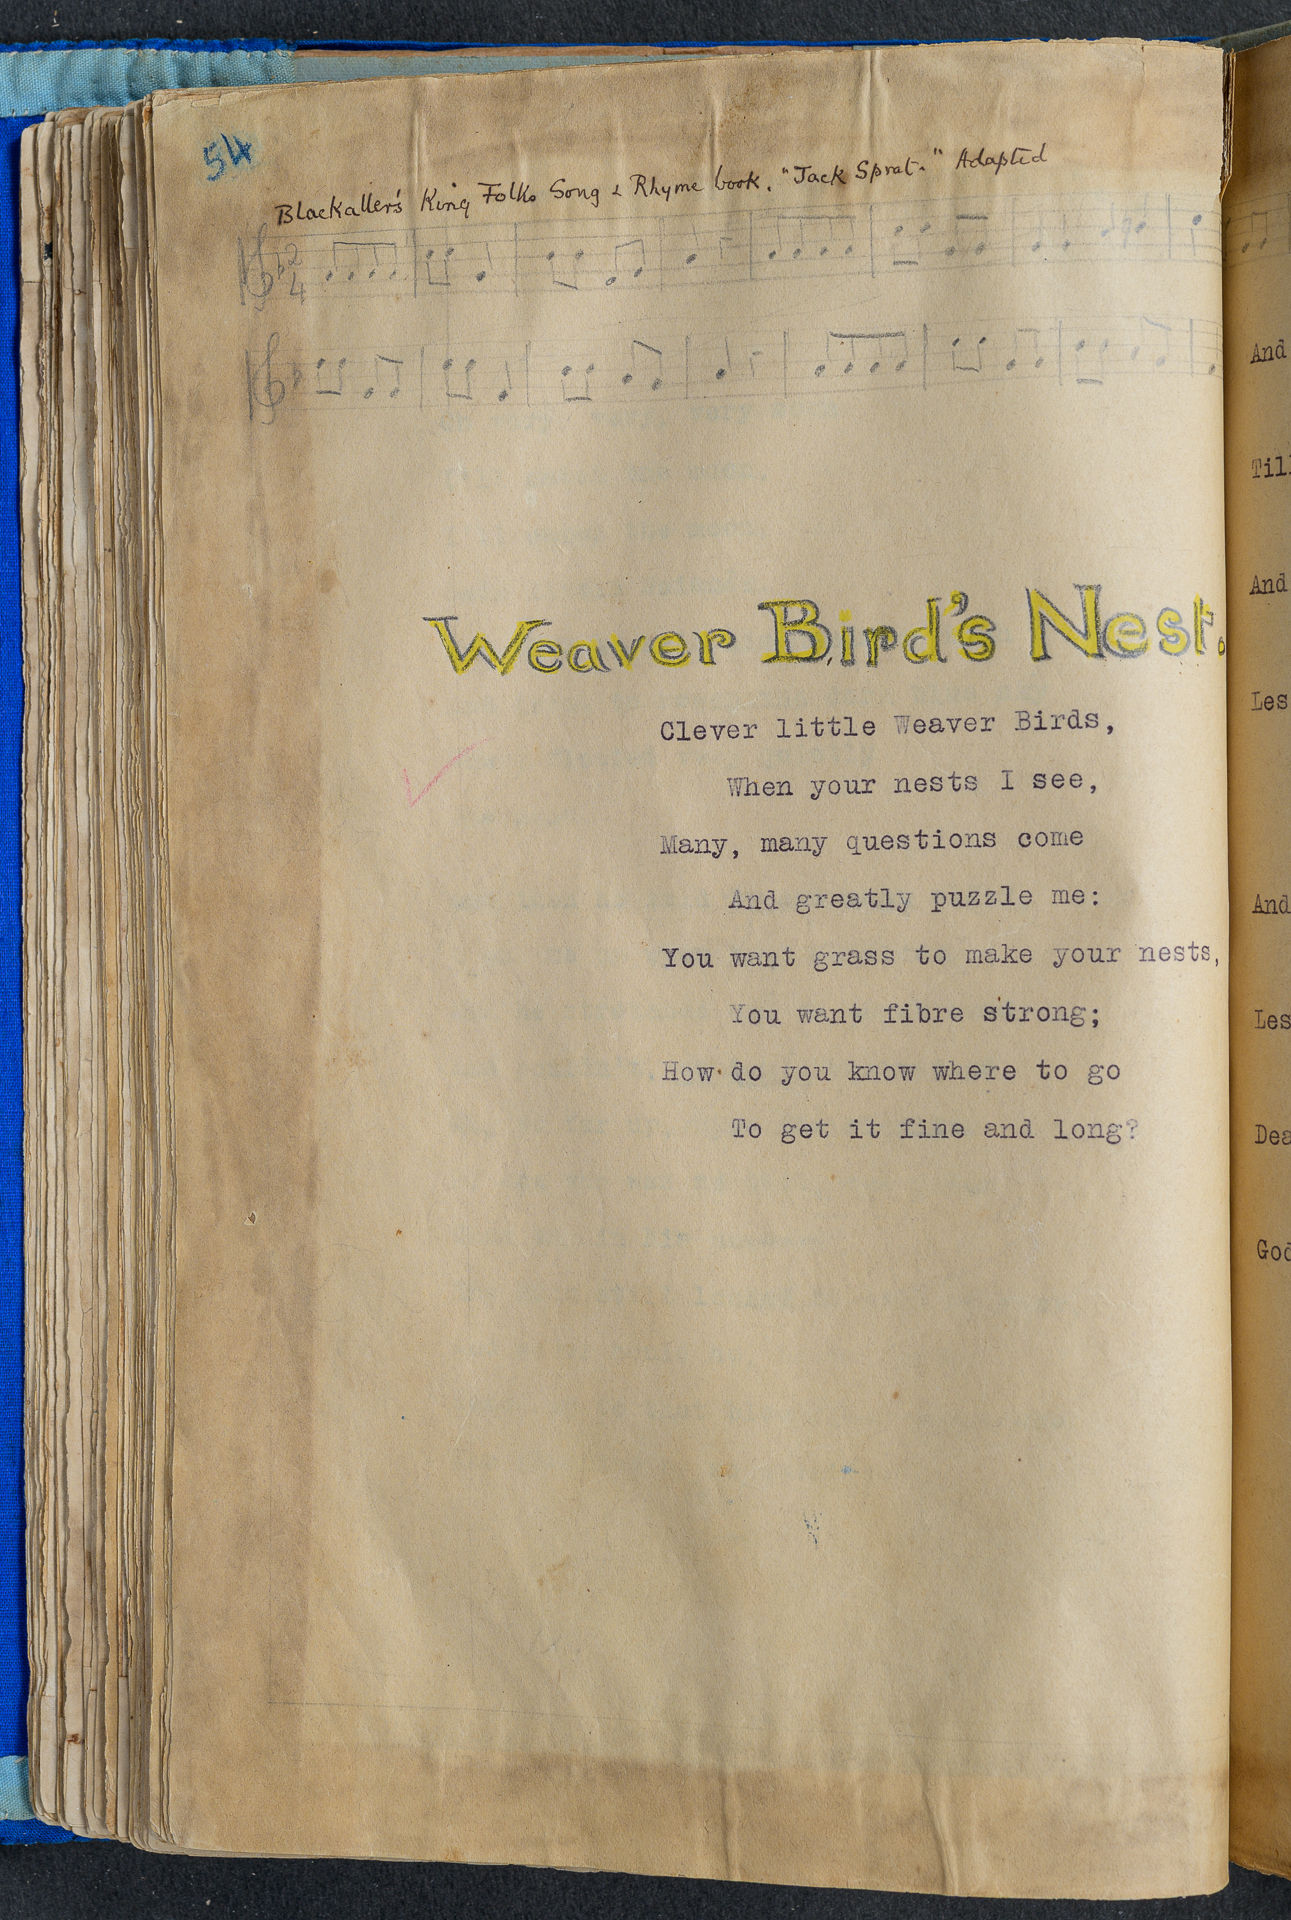 54
Blackaller's King Folks Song & Rhyme book. "Jack Sprat." Adapted
2
4
Weaver Bird's Nest.
Clever little Weaver Birds,
When your nests I see,
Many, many questions come
And greatly puzzle me:
You want grass to make your nests,
You want fibre strong;
How do you know where to go
To get it fine and long?
And
Till
And
Les
And
Les
Dea
God